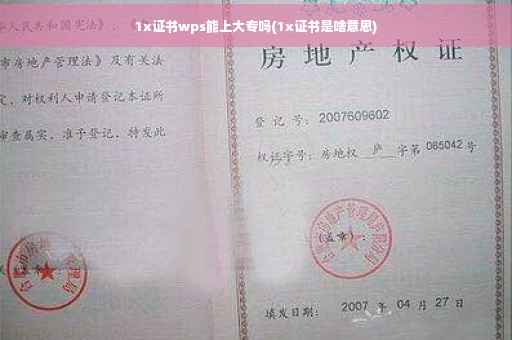 1x证书wps能上大专吗(1x证书是啥意思)
人民共和国宪法》、
市房地产管理法》及有关法
定，对权利人申请登记本证所
审查属实，准予登记，特发此
房地产权证
登记号：2007609602
权证字号：房地权 庐 字第 065042 号
(盖章)：
填发日期：2007 年 04 月 27 日